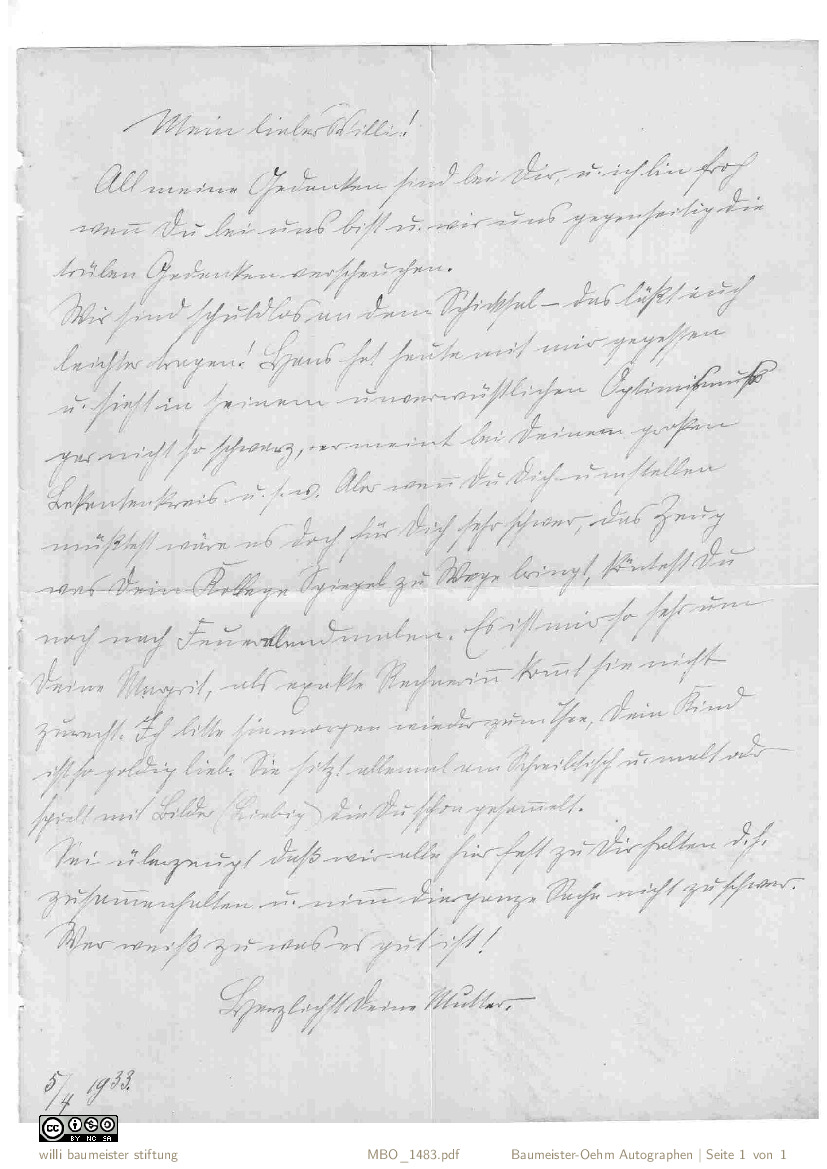 Mein lieber Willi!
All meine Gedanken sind bei Dir, u. ich bin froh
wen̄ Du bei uns bist u. wir uns gegenseitig die
trüben Gedanken verscheuchen.
Wir sind schuldlos an dem Schicksal – das läßt auch
leichter tragen! Hans hat heute mit mir gegessen
u. sieht in seinem unverwüstlichen Optimismuß
gar nicht so schwarz, er meint bei Deinem großen
u. s. w. Aber wen̄ Du Dich umstellen
müßtest wäre es doch für Dich sehr schwer, das Zeug
was Dein Kollege Spiegel zu Wege bringt, kön̄test Du
noch nach Feuerabend malen. Es ist mir so sehr um
Deine Margrit, als exakte Rechnerin̄ kom̄t sie nicht
zurecht. Ich bitte sie morgen wieder zum Thee, Dein Kind
ist so goldig lieb. Sie sitzt allemal am Schreibtisch u. malt oder
spielt mit Bilder (Liebig) die Du schon gesam̄elt.
Sei überzeugt daß wir alle hier fest zu Dir halten d. h.
zusam̄enhalten u. nim̄ die ganze Sache nicht zu schwer.
Wer weiß zu was es gut ist!
Herzlichst Deine Mutter.
5/4 1933.
CC BY NC SA
willi baumeister stiftung MBO_1483.pdf Baumeister-Oehm Autographen | Seite 1 von 1